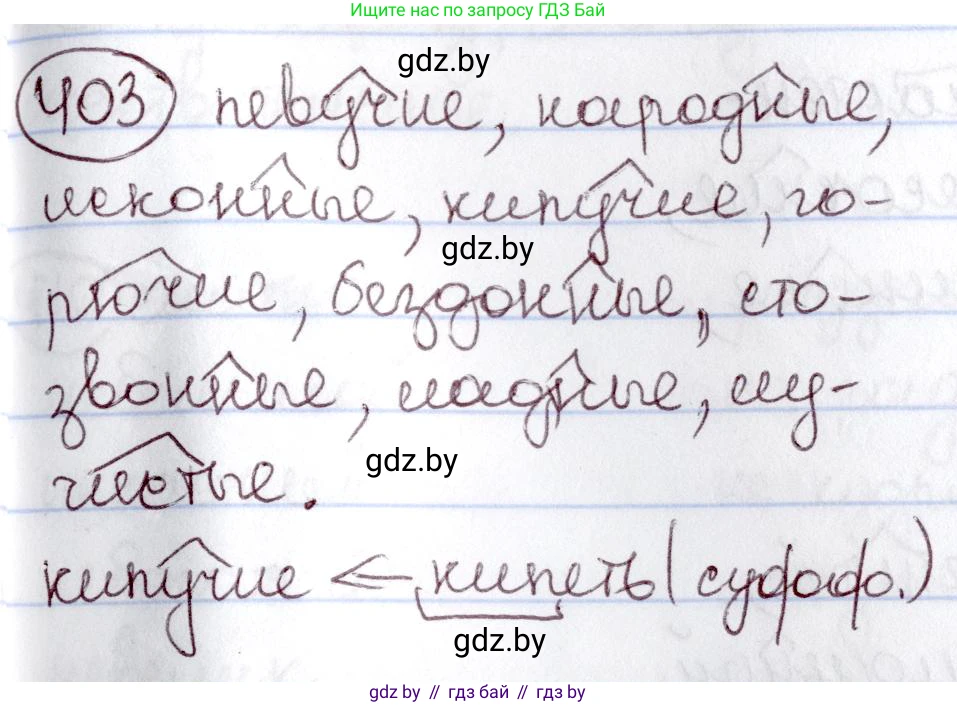 Ищите нас по запросу ГДЗ Бай
gdz.by
403 певучие, народные,
исконные, кипучие, го-
gdz.by
рючие, бездонные, сто-
звонные, ладные, лу-
gdz.by
чистые.
кипучие ← кипеть (суффф.)
gdz.by
gdz.by // гдз бай // gdz by